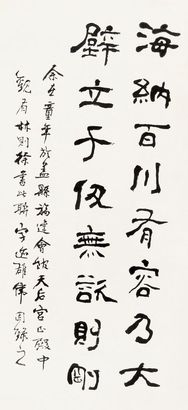 海納百川有容乃大
壁立千仞無欲則剛
余在童年於孟縣福建會館天后宮正殿中
觀有林則徐書此聯字遒雄偉因錄之